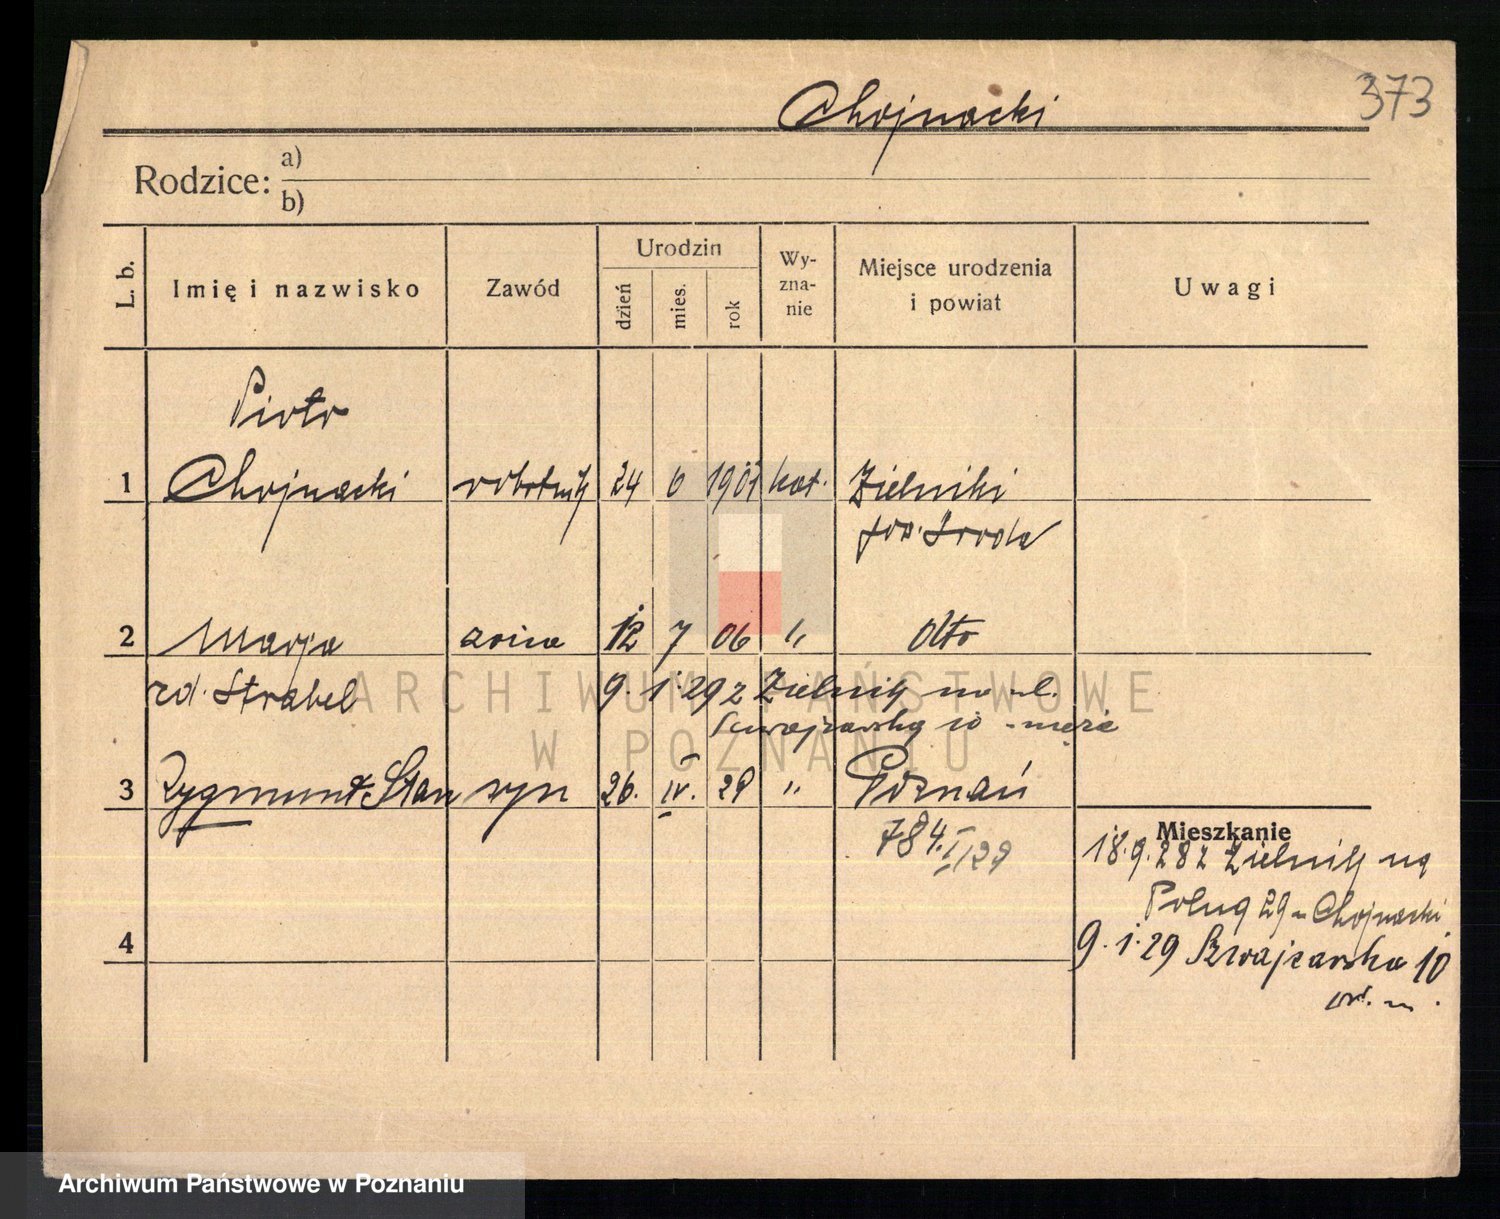 373
Chojnacki
Rodzice: a)
b)
L. b. Imię i nazwisko Zawód Urodzin dzień mies. rok Wy-zna-nie Miejsce urodzenia i powiat Uwagi
Piotr
1 Chojnacki robotnik 24 6 1901 kat. Zielniki
pow. Środa
2 Marja żona 12 7 06 " dto
zd. Strabel 9. 1. 29 z Zielnik na ul.
Szwajcarską 10 - męża
3 Zygmunt Stan syn 26. IV. 29 " Poznań
784.
Mieszkanie
18. 9. 28 z Zielnik na
29 Chojnacki
4
9. 1. 29 Szwajcarska 10
ARCHIWUM PAŃSTWOWE
W POZNANIU
Archiwum Państwowe w Poznaniu